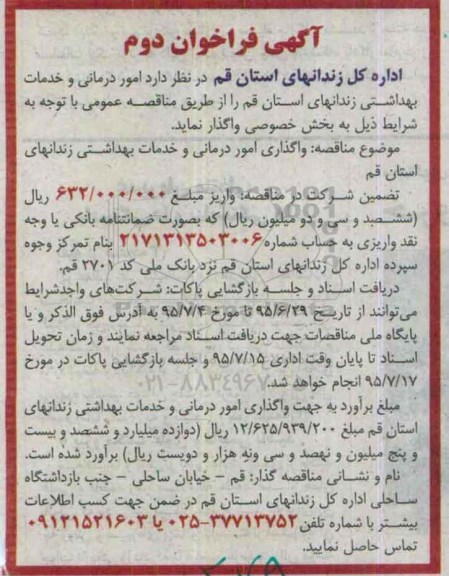 آگهی فراخوان دوم
اداره کل زندانهای استان قم در نظر دارد امور درمانی و خدمات
بهداشتی زندانهای استان قم را از طریق مناقصه عمومی با توجه به
شرایط ذیل به بخش خصوصی واگذار نماید.
موضوع مناقصه: واگذاری امور درمانی و خدمات بهداشتی زندانهای
استان قم
تضمین شرکت در مناقصه: واریز مبلغ ۶۳۲/۰۰۰/۰۰۰ ریال
(ششصد و سی و دو میلیون ریال) که بصورت ضمانتنامه بانکی یا وجه
نقد واریزی به حساب شماره ۲۱۷۱۳۱۳۵۰۳۰۰۶ بنام تمرکز وجوه
سپرده اداره کل زندانهای استان قم نزد بانک ملی کد ۲۷۰۱ قم.
دریافت اسناد و جلسه بازگشایی پاکات: شرکت‌های واجدشرایط
می‌توانند از تاریخ ۹۵/۶/۲۹ تا مورخ ۹۵/۷/۴ به آدرس فوق الذکر و یا
پایگاه ملی مناقصات جهت دریافت اسناد مراجعه نمایند و زمان تحویل
اسناد تا پایان وقت اداری ۹۵/۷/۱۵ و جلسه بازگشایی پاکات در مورخ
۹۵/۷/۱۷ انجام خواهد شد.
مبلغ برآورد به جهت واگذاری امور درمانی و خدمات بهداشتی زندانهای
استان قم مبلغ ۱۲/۶۲۵/۹۳۹/۲۰۰ ریال (دوازده میلیارد و ششصد و بیست
و پنج میلیون و نهصد و سی ونه هزار و دویست ریال) برآورد شده است.
نام و نشانی مناقصه گذار: قم - خیابان ساحلی - جنب بازداشتگاه
ساحلی اداره کل زندانهای استان قم در ضمن جهت کسب اطلاعات
بیشتر با شماره تلفن ۳۷۷۱۳۷۵۲-۰۲۵ یا ۰۹۱۲۱۵۲۱۶۰۳
تماس حاصل نمایید.